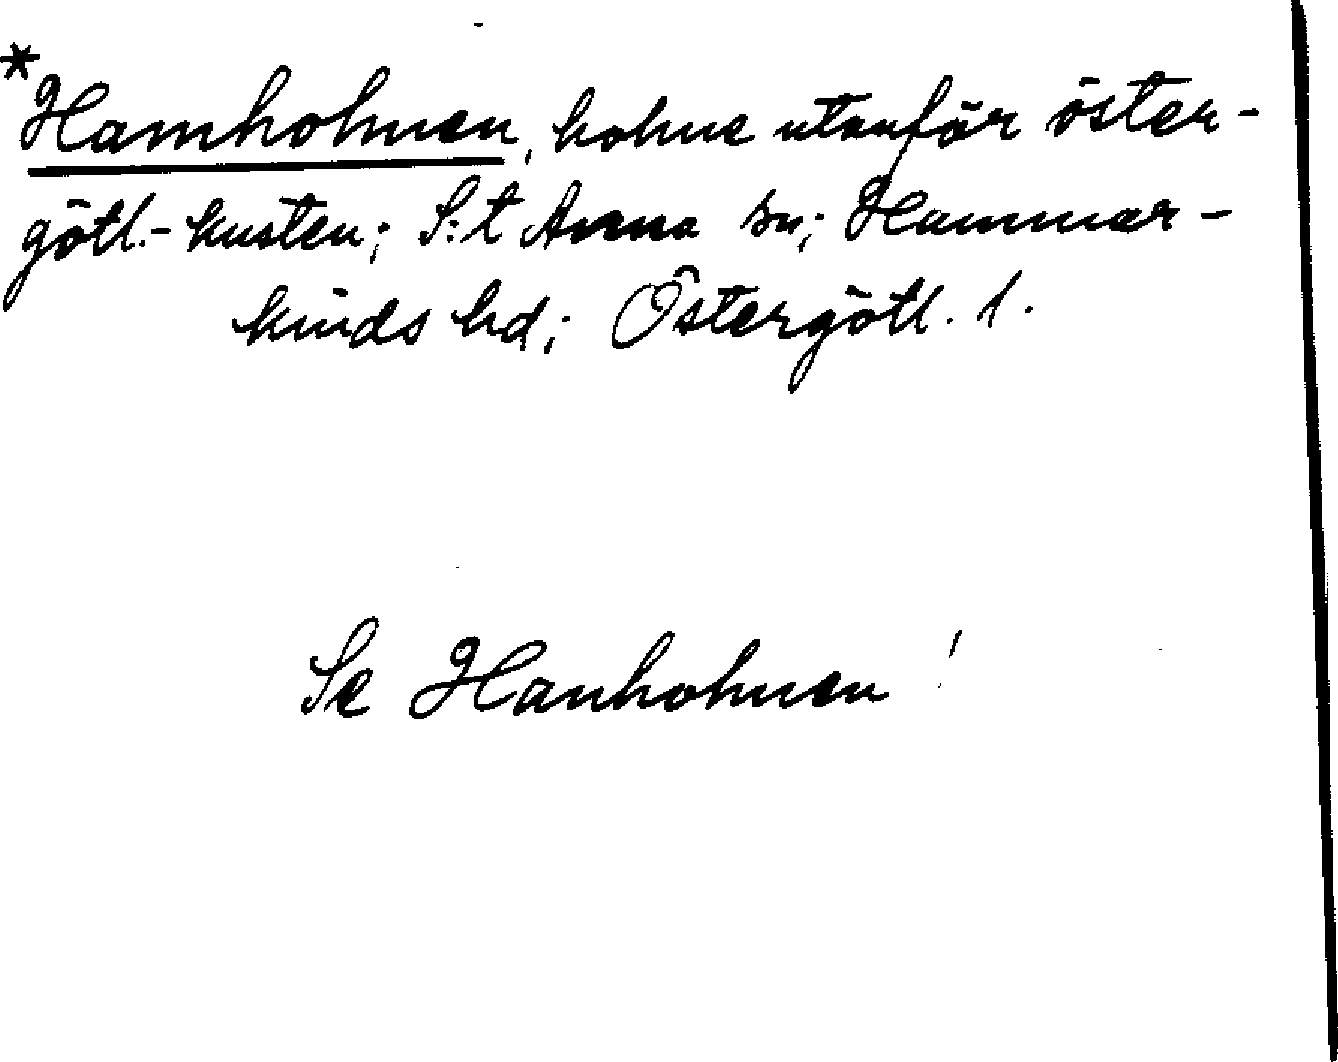 *Hamholmen, holme utanför öster-
götl.-kusten; S:t Anna sn; Hammar-
kinds hd; Östergötl. l.
Se Hanholmen!